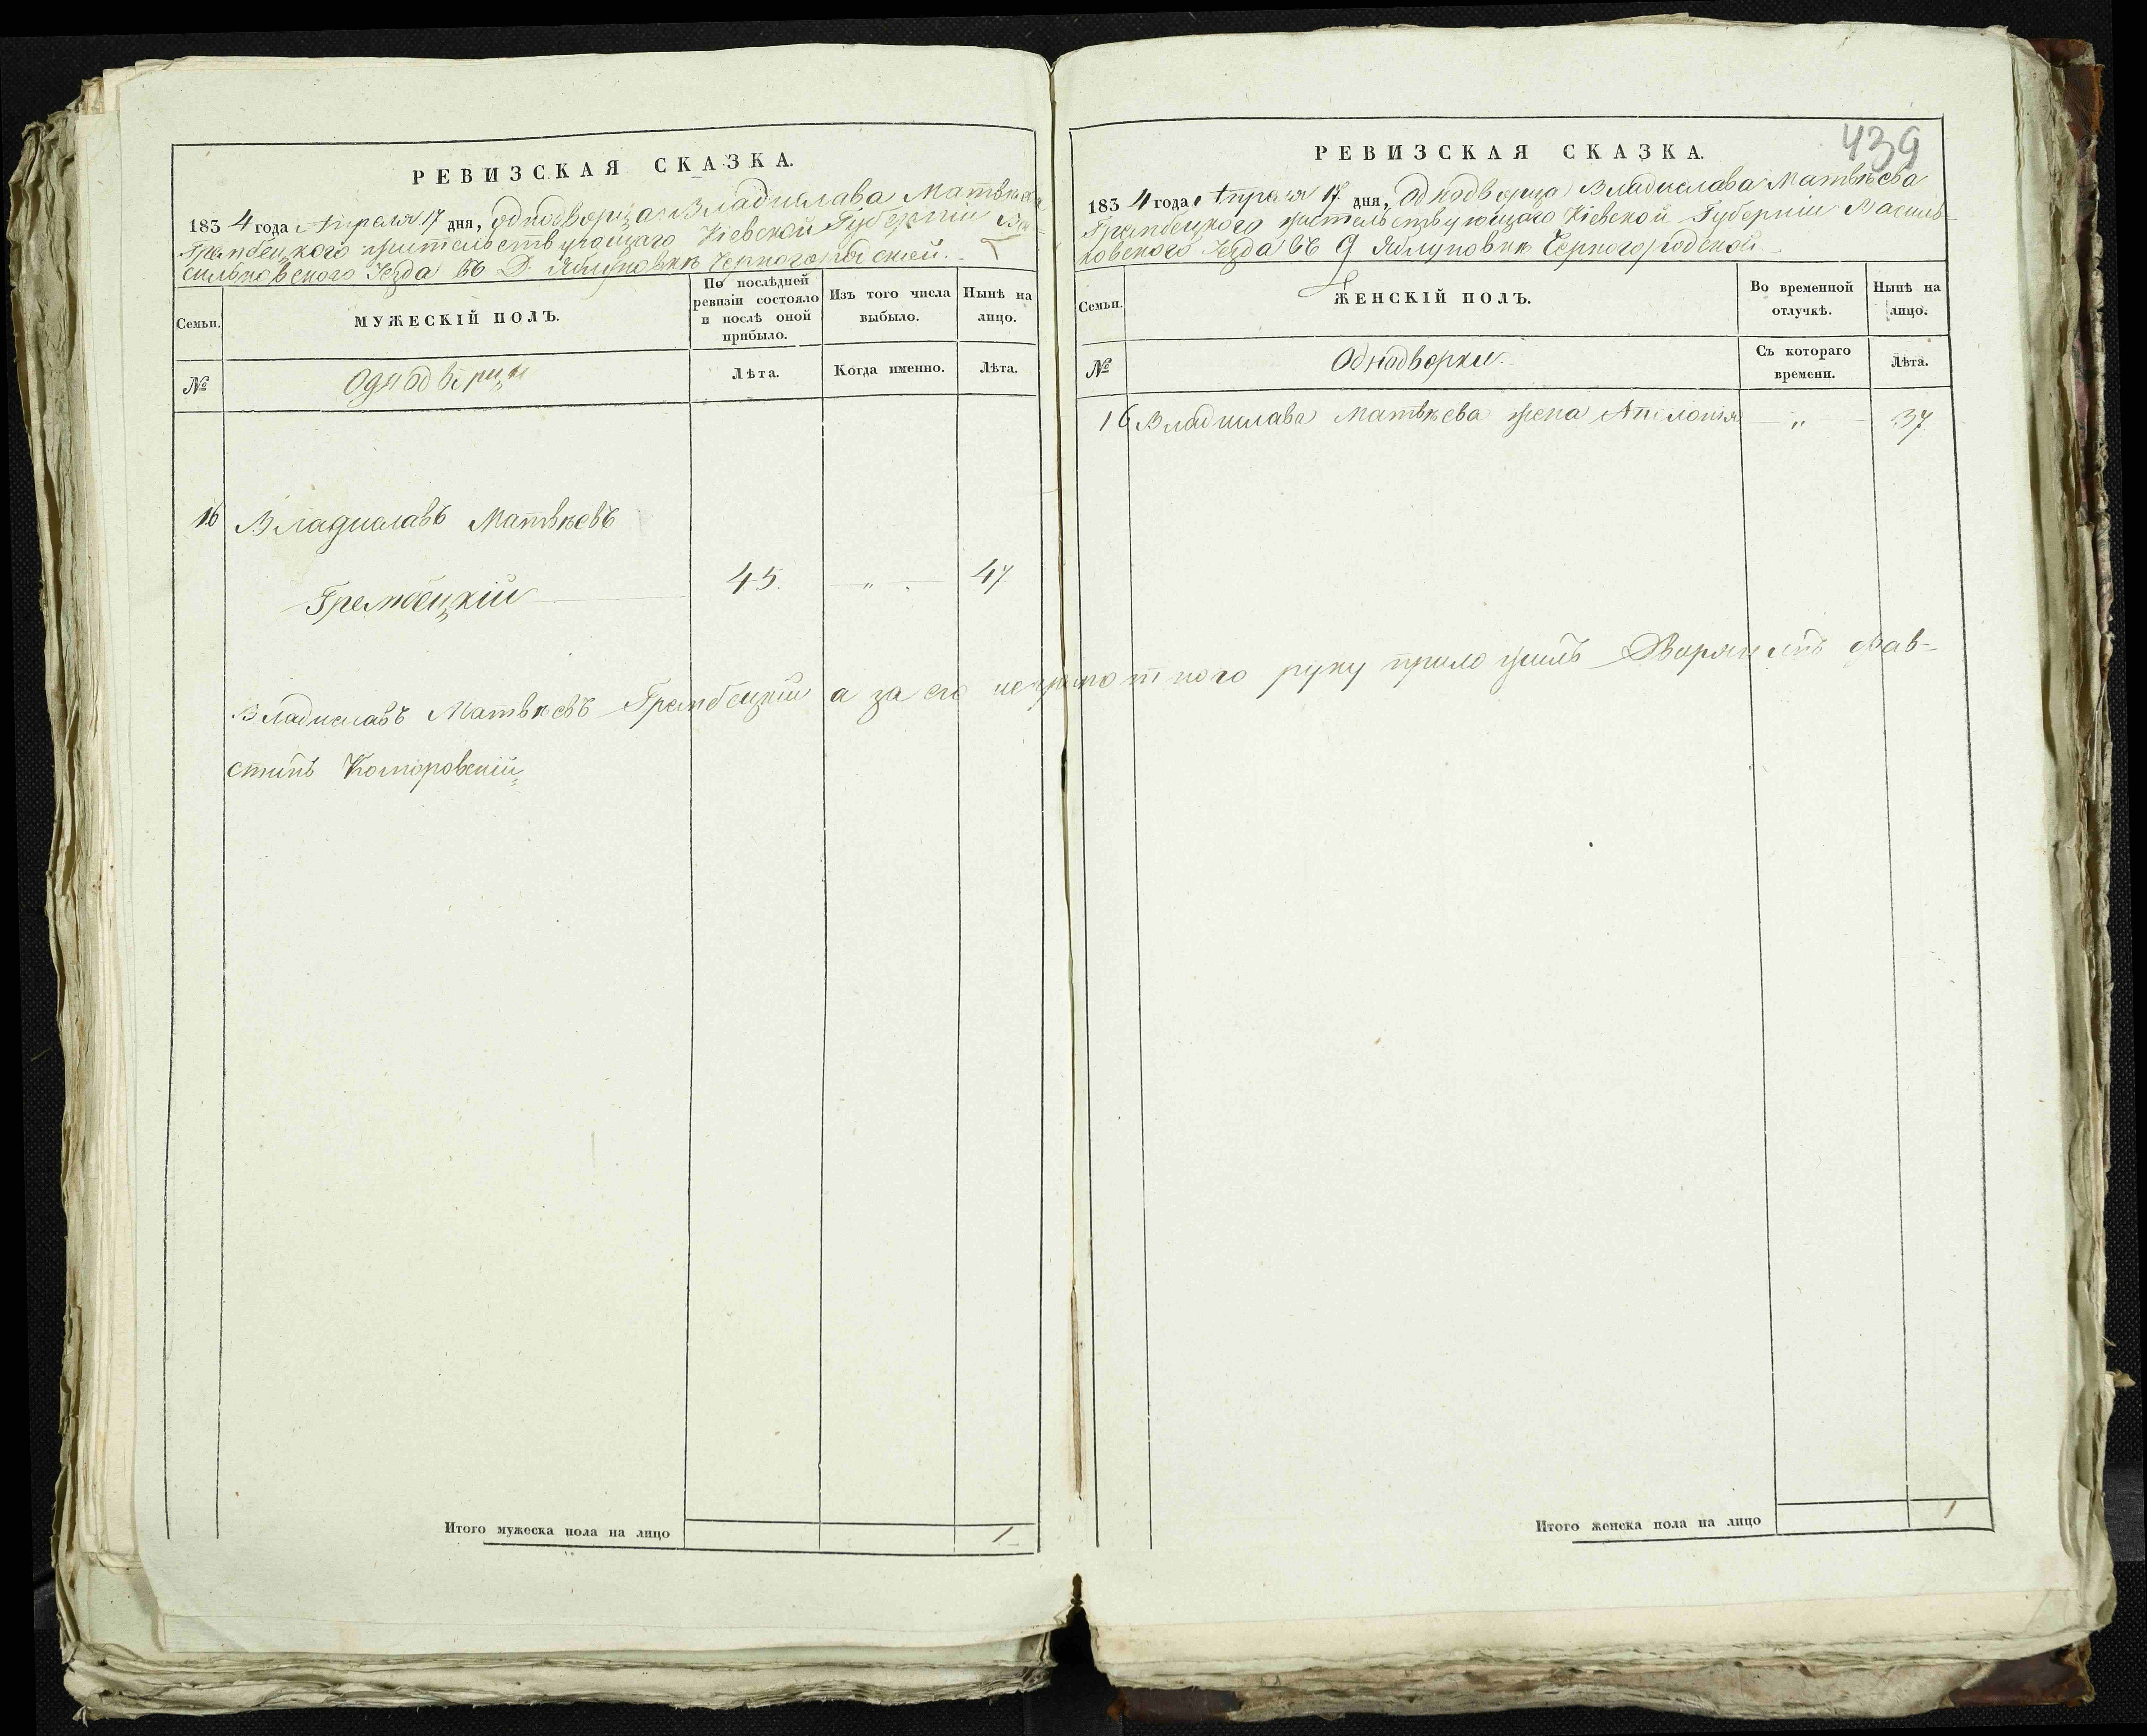 РЕВИЗСКАЯ СКАЗКА.
1834 года Апреля 17 дня, однодворца Владислава Матвѣева
Грембецкого жительствующаго Кіевской Губерніи Ва-
сильковского Уезда въ Д. Яблуновкѣ Черногородской.
Семьи.
МУЖЕСКІЙ ПОЛЪ.
По послѣдней ревизіи состояло и послѣ оной прибыло.
Изъ того числа выбыло.
Нынѣ на лицо.
№
Однодворцы
Лѣта.
Когда именно.
Лѣта.
16 Владиславъ Матвѣевъ
Грембецкій 45. „ 47
Владиславъ Матвѣевъ Грембецкій а за его неграмотного руку приложилъ Дворянинъ Фав-
стинъ Коморовскій
Итого мужеска пола на лицо 1
439
РЕВИЗСКАЯ СКАЗКА.
1834 года Апреля 17. дня, Однодворца Владислава Матвѣева
Грембецкого жительствующаго Кіевской Губерніи Василь-
ковского Уезда въ Д Яблуновкѣ Черногородской
Семьи.
ЖЕНСКІЙ ПОЛЪ.
Во временной отлучкѣ.
Нынѣ на лицо.
№
Однодворки.
Съ котораго времени.
Лѣта.
16 Владислава Матвѣева жена Аполонія „ 37
Итого женска пола на лицо 1